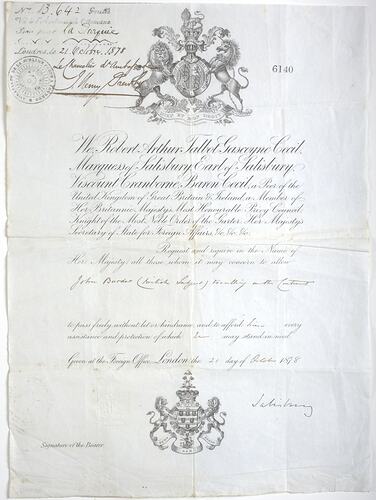 No 13,642 Gratis
Vu à l'Ambassade Ottomane
Bon pour la Turquie
Londres, le 21 Octobre 1878
Le Chancelier d'Ambassade
6140
We, Robert Arthur Talbot Gascoyne Cecil,
Marquess of Salisbury, Earl of Salisbury,
Viscount Cranborne, Baron Cecil, a Peer of the
United Kingdom of Great Britain & Ireland, a Member of
Her Britannic Majesty's Most Honourable Privy Council,
Knight of the Most Noble Order of the Garter, Her Majesty's
Secretary of State for Foreign Affairs, &c. &c. &c.
Request and require in the Name of
Her Majesty, all those whom it may concern to allow
John (British Subject) travelling on the Continent
to pass freely without let or hindrance, and to afford him every
assistance and protection of which he may stand in need.
Given at the Foreign Office, London, the 21 day of October 1878
Salisbury
Signature of the Bearer.